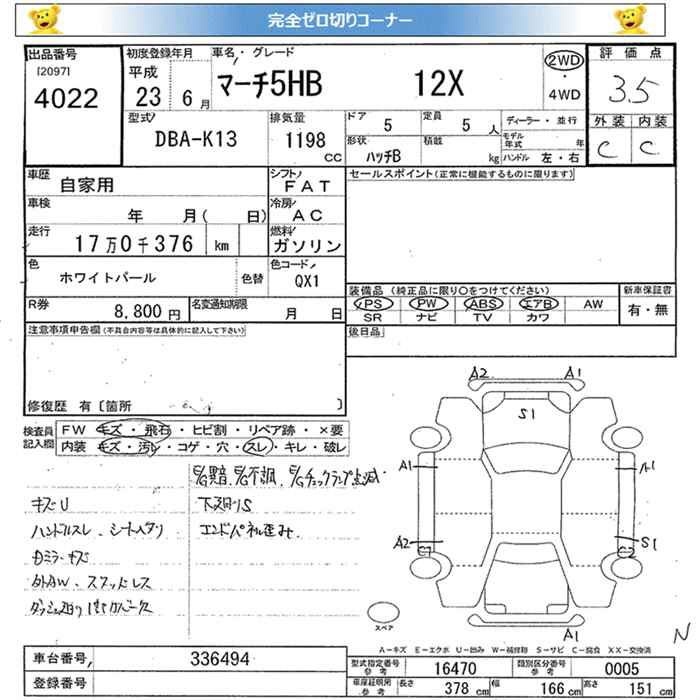 完全ゼロ切りコーナー
出品番号 初度登録年月 車名・グレード 評価点
[2097] 平成 マーチ5HB 12X 2WD・4WD 3.5
4022 23 6月
型式 排気量 ドア 定員 ディーラー・並行 外装 内装
DBA-K13 1198 CC 5 5人 モデル年式 年 C C
形状 積載 kg ハンドル 左・右
ハッチB
車歴 自家用 シフト FAT セールスポイント(正常に機能するものに限ります)
車検 年 月( 日) 冷房 AC
走行 17万0千376 km 燃料 ガソリン
色 ホワイトパール 色替 色コード QX1
装備品 (純正品に限り○をつけてください) 新車保証書
PS PW ABS エアB AW 有・無
SR ナビ TV カワ
R券 8,800円 名変通知期限 月 日
注意事項申告欄(不具合内容等は具体的に記入して下さい) 後日品
修復歴 有〔箇所 〕
検査員記入欄 FW キズ・飛石・ヒビ割・リペア跡・×要
内装 キズ・汚レ・コゲ・穴・スレ・キレ・破レ
E/G異音、E/G不調、E/Gチェックランプ点滅
キズU 下廻りS
ハンドルスレ、シートヘタリ エンドパネル歪み
カミラーキズ
社外AW、スタッドレス
A2 A1
S1
A1 A1
A2 C2 C2 S1
A1
スペア
N
A-キズ E-エクボ U-凹み W-補修跡 S-サビ C-腐食 XX-交換済
車台番号 336494 型式指定番号参考 16470 類別区分番号参考 0005
登録番号 車庫証明用参考 長さ 378cm 幅 166cm 高さ 151cm